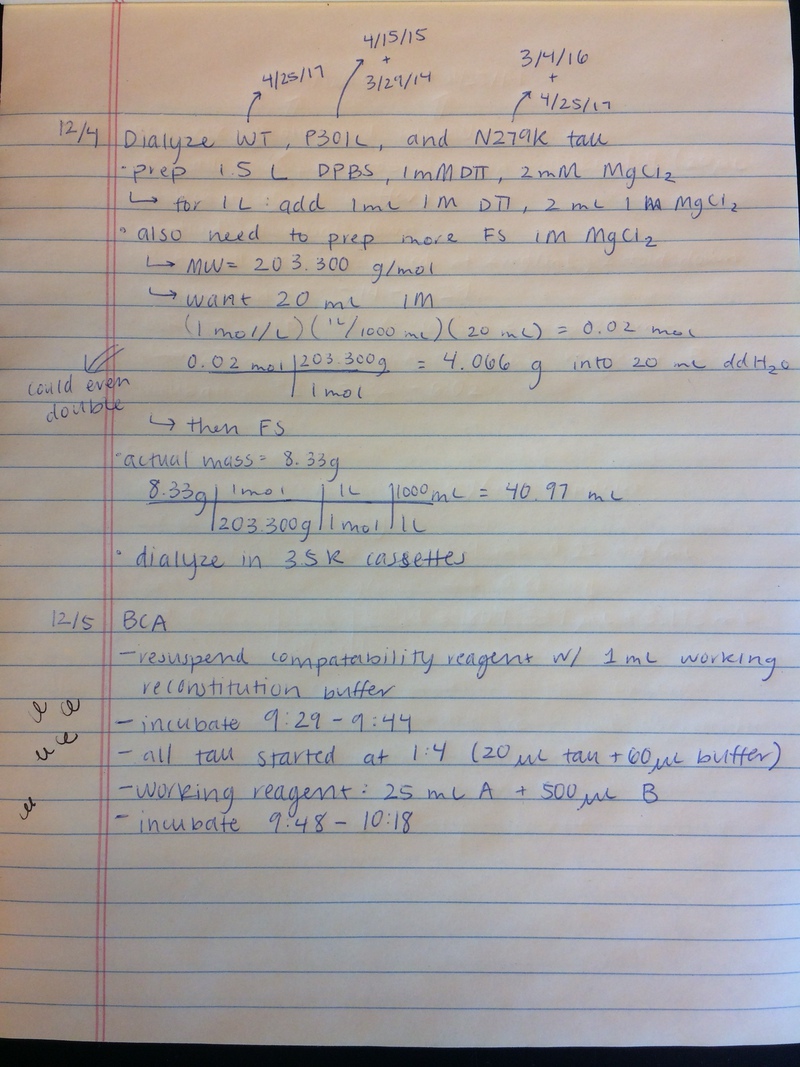 4/15/15
+
3/29/14
4/25/17
3/4/16
+
4/25/17
12/4 Dialyze WT, P301L, and N279K tau
· prep 1.5 L DPBS, 1mM DTT, 2mM MgCl2
↳ for 1L: add 1mL 1M DTT, 2 mL 1M MgCl2
· also need to prep more FS 1M MgCl2
↳ MW = 203.300 g/mol
↳ want 20 mL 1M
(1 mol/L)(1L/1000 mL)(20 mL) = 0.02 mol
0.02 mol | 203.300g = 4.066 g into 20 mL ddH2O
1 mol
could even
double
↳ then FS
· actual mass = 8.33g
8.33g | 1mol | 1L | 1000mL = 40.97 mL
203.300g | 1mol | 1L
· dialyze in 3.5K cassettes
12/5 BCA
- resuspend compatability reagent w/ 1mL working
reconstitution buffer
- incubate 9:29 - 9:44
- all tau started at 1:4 (20μL tau + 60μL buffer)
- working reagent: 25 mL A + 500μL B
- incubate 9:48 - 10:18